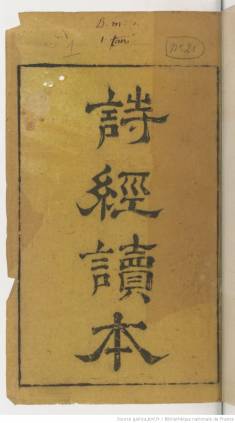 B. m.
1 fan
詩經讀本
Source gallica.bnf.fr / Bibliothèque nationale de France